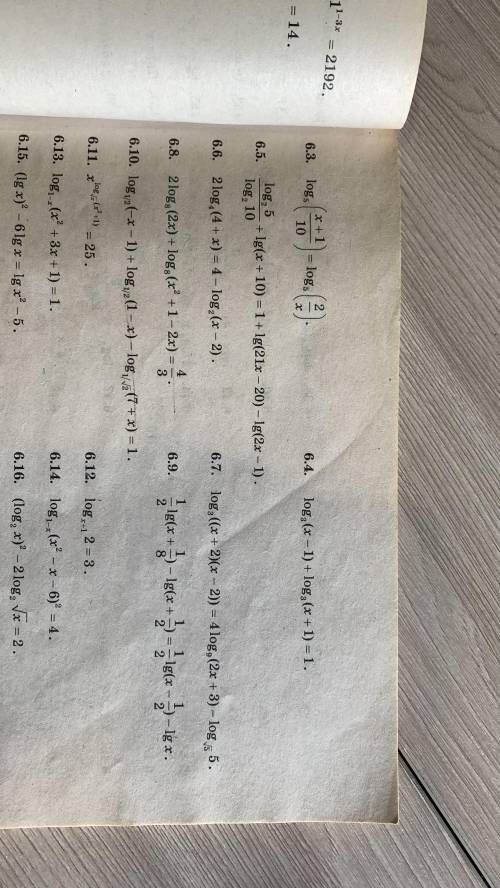 1^{1-3x} = 2192.
= 14.
6.3. log₅((x+1)/10) = log₅(2/x).
6.4. log₃(x − 1) + log₃(x + 1) = 1.
6.5. log₂ 5 / log₂ 10 + lg(x + 10) = 1 + lg(21x − 20) − lg(2x − 1).
6.6. 2 log₄(4 + x) = 4 − log₂(x − 2).
6.7. log₃((x + 2)(x − 2)) = 4 log₉(2x + 3) − log_{√5} 5.
6.8. 2 log₈(2x) + log₈(x² + 1 − 2x) = 4/3.
6.9. 1/2 lg(x + 1/8) − lg(x + 1/2) = 1/2 lg(x − 1/2) − lg x.
6.10. log_{1/2}(−x − 1) + log_{1/2}(1 − x) − log_{1/√2}(7 + x) = 1.
6.11. = 25.
6.12. log_{x+1} 2 = 3.
6.13. log_{1−x}(x² + 3x + 1) = 1.
6.14. log_{1−x}(x² − x − 6)² = 4.
6.15. (lg x)² − 6 lg x = lg x² − 5.
6.16. (log₂ x)² − 2 log₂ √x = 2.